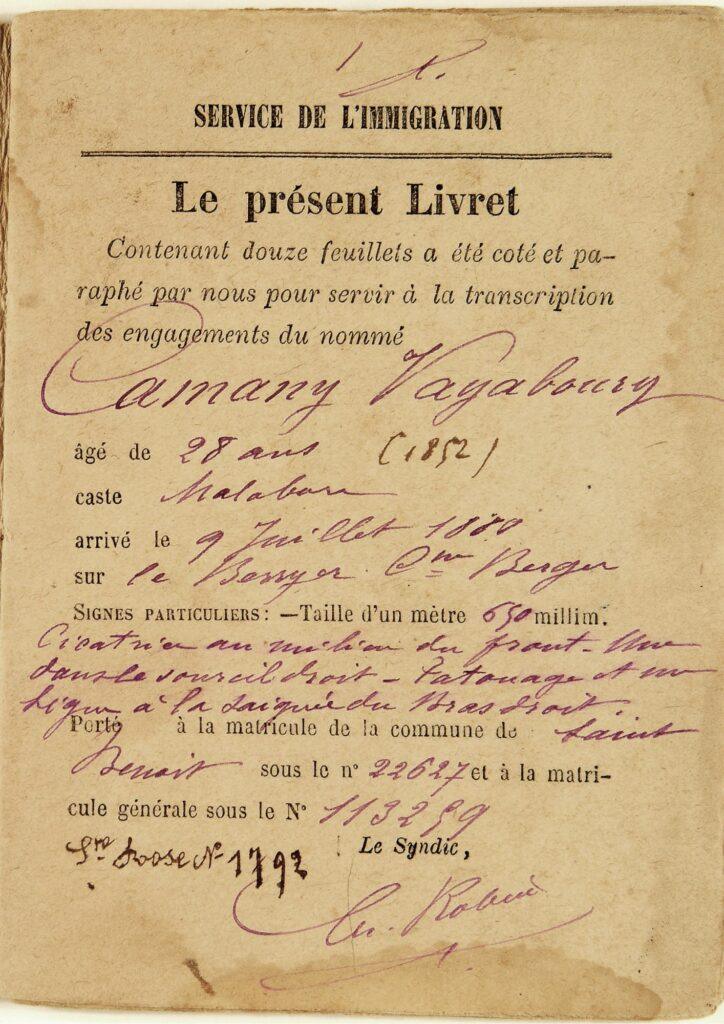 SERVICE DE L'IMMIGRATION
Le présent Livret
Contenant douze feuillets a été coté et pa-
raphé par nous pour servir à la transcription
des engagements du nommé
Camany Vayaboury
âgé de 28 ans (1852)
caste Malabare
arrivé le 9 Juillet 1880
sur le Berryer Cne Berger
SIGNES PARTICULIERS: —Taille d'un mètre 650 millim.
Cicatrice au milieu du front - Une
dans le sourcil droit - Tatouage et un
signe à la saignée du Bras droit.
Porté à la matricule de la commune de Saint
Benoit sous le n° 22627 et à la matri-
cule générale sous le N° 113259
Ste Rose N° 1793
Le Syndic,